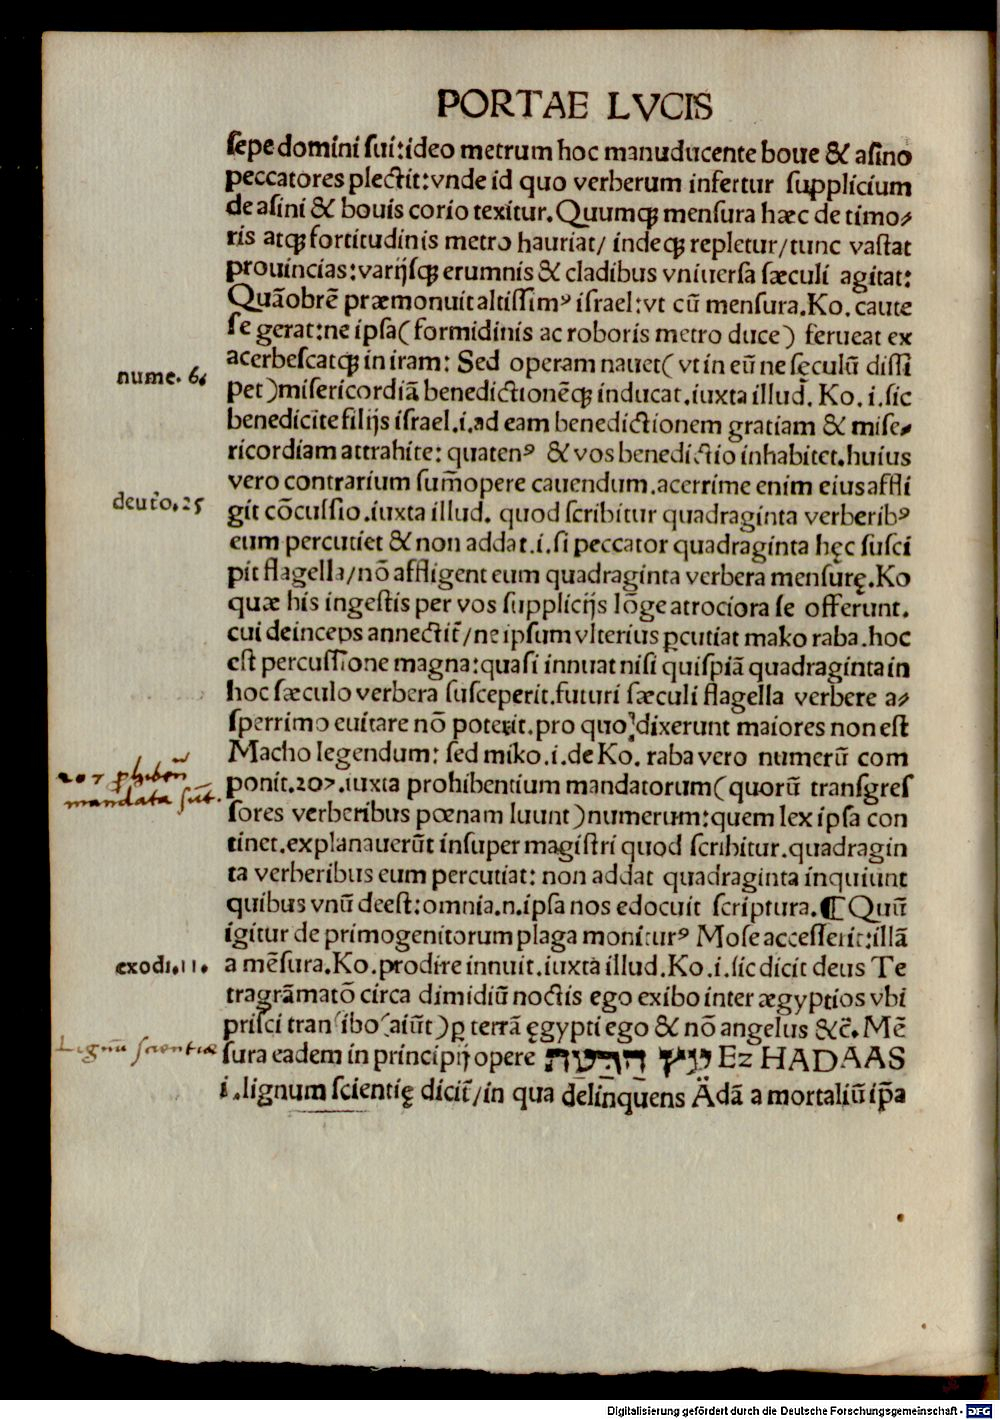 PORTAE LVCIS
sepe domini sui:ideo metrum hoc manuducente boue & asino
peccatores plectit:vnde id quo verberum infertur supplicium
de asini & bouis corio texitur.Quumqꝫ mensura hæc de timo⸗
ris atqꝫ fortitudinis metro hauriat/ indeqꝫ repletur/tunc vastat
prouincias:varijsqꝫ erumnis & cladibus vniuersa sæculi agitat:
Quãobrẽ præmonuit altissimꝰ israel:vt cũ mensura.Ko.caute
se gerat:ne ipsa(formidinis ac roboris metro duce) ferueat ex
acerbescatqꝫ in iram: Sed operam nauet(vt in eũ ne sęculũ dissi
nume. 6.
pet)misericordiã benedictionẽqꝫ inducat.iuxta illud. Ko.i.sic
benedicite filijs israel.i.ad eam benedictionem gratiam & mise⸗
ricordiam attrahite: quatenꝰ & vos benedictio inhabitet.huius
vero contrarium sum̃opere cauendum.acerrime enim eius affli
deuto.25
git cõcussio.iuxta illud. quod scribitur quadraginta verberibꝰ
eum percutiet & non addat.i.si peccator quadraginta hęc susci
pit flagella/nõ affligent eum quadraginta verbera mensurę.Ko
quæ his ingestis per vos supplicijs lõge atrociora se offerunt.
cui deinceps annectit̃/ne ipsum vlterius ꝑcutiat mako raba.hoc
est percussione magna:quasi innuat nisi quispiã quadraginta in
hoc sæculo verbera susceperit.futuri sæculi flagella verbere a⸗
sperrimo euitare nõ poterit.pro quo dixerunt maiores non est
Macho legendum: sed miko.i.de Ko. raba vero numerũ com
207 ꝓhiben̄
mandata sūt.
ponit.207.iuxta prohibentium mandatorum(quorũ transgres
sores verberibus pœnam luunt)numerum:quem lex ipsa con
tinet.explanauerũt insuper magistri quod scribitur.quadragin
ta verberibus eum percutiat: non addat quadraginta inquiunt
quibus vnũ deest:omnia.n.ipsa nos edocuit scriptura.¶Quũ
igitur de primogenitorum plaga moniturꝰ Mose accesserit:illã
exodi.11.
a mẽsura.Ko.prodire innuit.iuxta illud.Ko.i.sic dicit deus Te
tragrãmatõ circa dimidiũ noctis ego exibo inter ægyptios vbi
prisci tran(ibo(aiũt)ꝑ terrã ęgypti ego & nõ angelus &c̃.Mẽ
Lignū scientiæ
sura eadem in principij opere עץ הדעת Ez HADAAS
i.lignum scientię dicit̃/in qua delinquens Adã a mortaliũ ip̃a
Digitalisierung gefördert durch die Deutsche Forschungsgemeinschaft - DFG